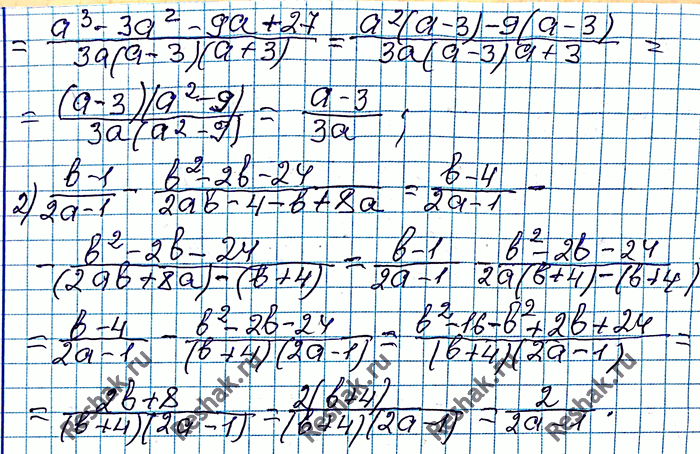 = (a³ - 3a² - 9a + 27)/(3a(a-3)(a+3)) = (a²(a-3) - 9(a-3))/(3a(a-3)a+3) =
= ((a-3)(a²-9))/(3a(a²-9)) = (a-3)/(3a) ;
2) (b-1)/(2a-1) - (b²-2b-24)/(2ab-4-b+8a) = (b-4)/(2a-1) -
- (b²-2b-24)/((2ab+8a)-(b+4)) = (b-1)/(2a-1) - (b²-2b-24)/(2a(b+4)-(b+4))
= (b-4)/(2a-1) - (b²-2b-24)/((b+4)(2a-1)) = (b²-16-b²+2b+24)/((b+4)(2a-1)) =
= (2b+8)/((b+4)(2a-1)) = (2(b+4))/((b+4)(2a-1)) = 2/(2a-1) .
Reshak.ru Reshak.ru Reshak.ru Reshak.ru Reshak.ru